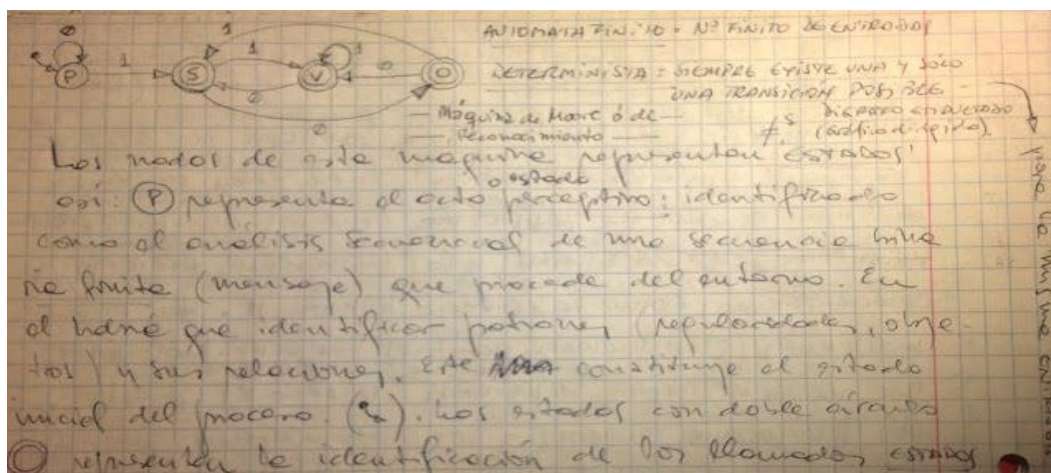 AUTOMATA FINITO = Nº FINITO DE ENTRADAS
DETERMINISTA = SIEMPRE EXISTE UNA Y SÓLO
UNA TRANSICIÓN POSIBLE
0
1
1
1
0
P
S
V
O
0
0
1
— Máquina de Moore ó de —
— Reconocimiento —
≠s
(gráfico dirigido)
Los nodos de esta maquina representan "ESTADOS"
o estado
así: P representa el acto perceptivo; identificado
como el análisis secuencial de una secuencia bina
ria finita (mensaje) que procede del entorno. En
el habrá que identificar patrones (regularidades, obje-
tos) y sus relaciones. Este constituye el estado
inicial del proceso. Los estados con doble círculo
representan la identificación de los llamados ESTADOS